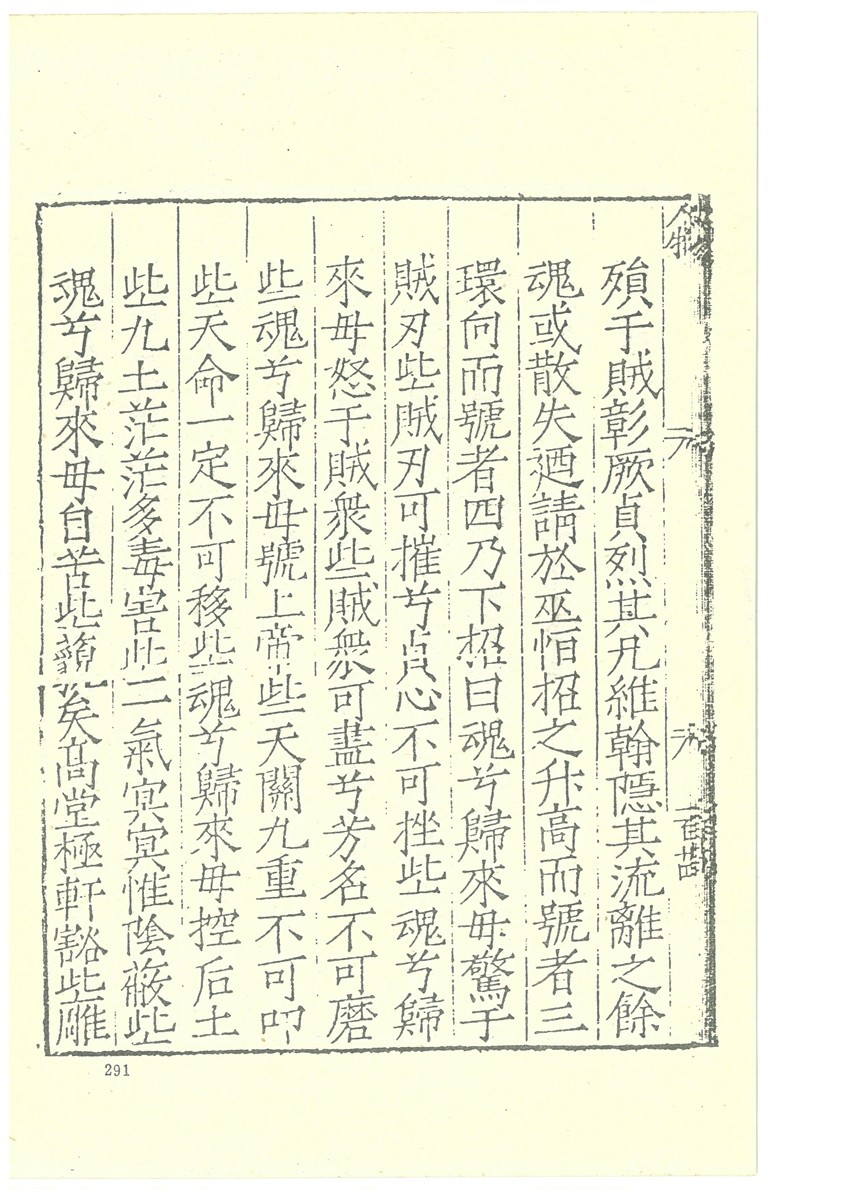 人物
元
殞于賊彰厥貞烈其兄維翰隱其流離之餘
魂或散失廼請於巫恒招之升高而號者三
環向而號者四乃下招曰魂兮歸來毋驚于
賊刃些賊刃可摧兮貞心不可挫些魂兮歸
來毋怒于賊衆些賊衆可盡兮芳名不可磨
些魂兮歸來毋號上帝些天關九重不可叩
些天命一定不可移些魂兮歸來毋控后土
些九土茫茫多毒害些二氣冥冥惟陰蔽些
魂兮歸來毋自苦些矣高堂極軒豁些雕
291